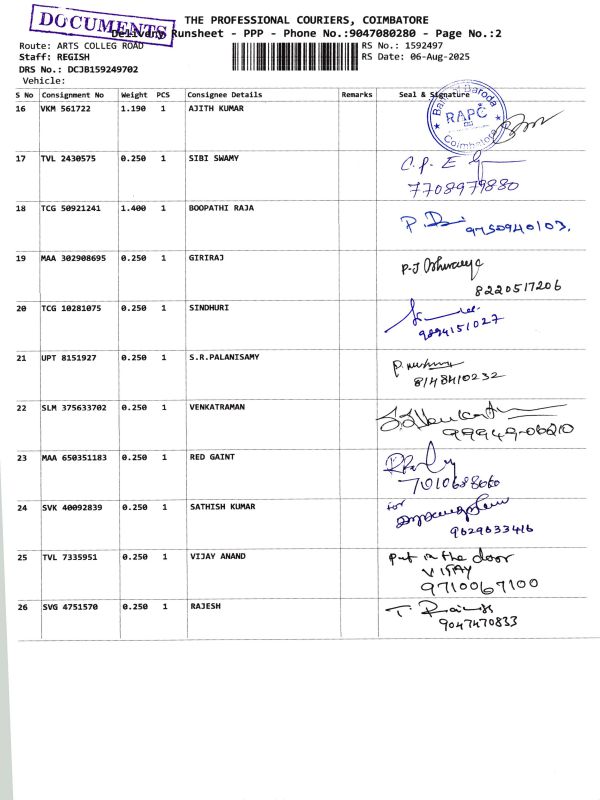 DOCUMENTS
THE PROFESSIONAL COURIERS, COIMBATORE
Delivery Runsheet - PPP - Phone No.:9047080280 - Page No.:2
Route: ARTS COLLEG ROAD
RS No.: 1592497
Staff: REGISH
RS Date: 06-Aug-2025
DRS No.: DCJB159249702
Vehicle:
S No Consignment No Weight PCS Consignee Details Remarks Seal & Signature
16 VKM 561722 1.190 1 AJITH KUMAR
Bank of Baroda
RAPC
Coimbatore
17 TVL 2430575 0.250 1 SIBI SWAMY
7708979880
18 TCG 50921241 1.400 1 BOOPATHI RAJA
9750940103.
19 MAA 302908695 0.250 1 GIRIRAJ
8220517206
20 TCG 10281075 0.250 1 SINDHURI
9894151027
21 UPT 8151927 0.250 1 S.R.PALANISAMY
8148410232
22 SLM 375633702 0.250 1 VENKATRAMAN
99949-06210
23 MAA 650351183 0.250 1 RED GAINT
7010688060
24 SVK 40092839 0.250 1 SATHISH KUMAR
for
9629633416
25 TVL 7335951 0.250 1 VIJAY ANAND
Put in the door
VIJAY
9710067100
26 SVG 4751570 0.250 1 RAJESH
9047470833